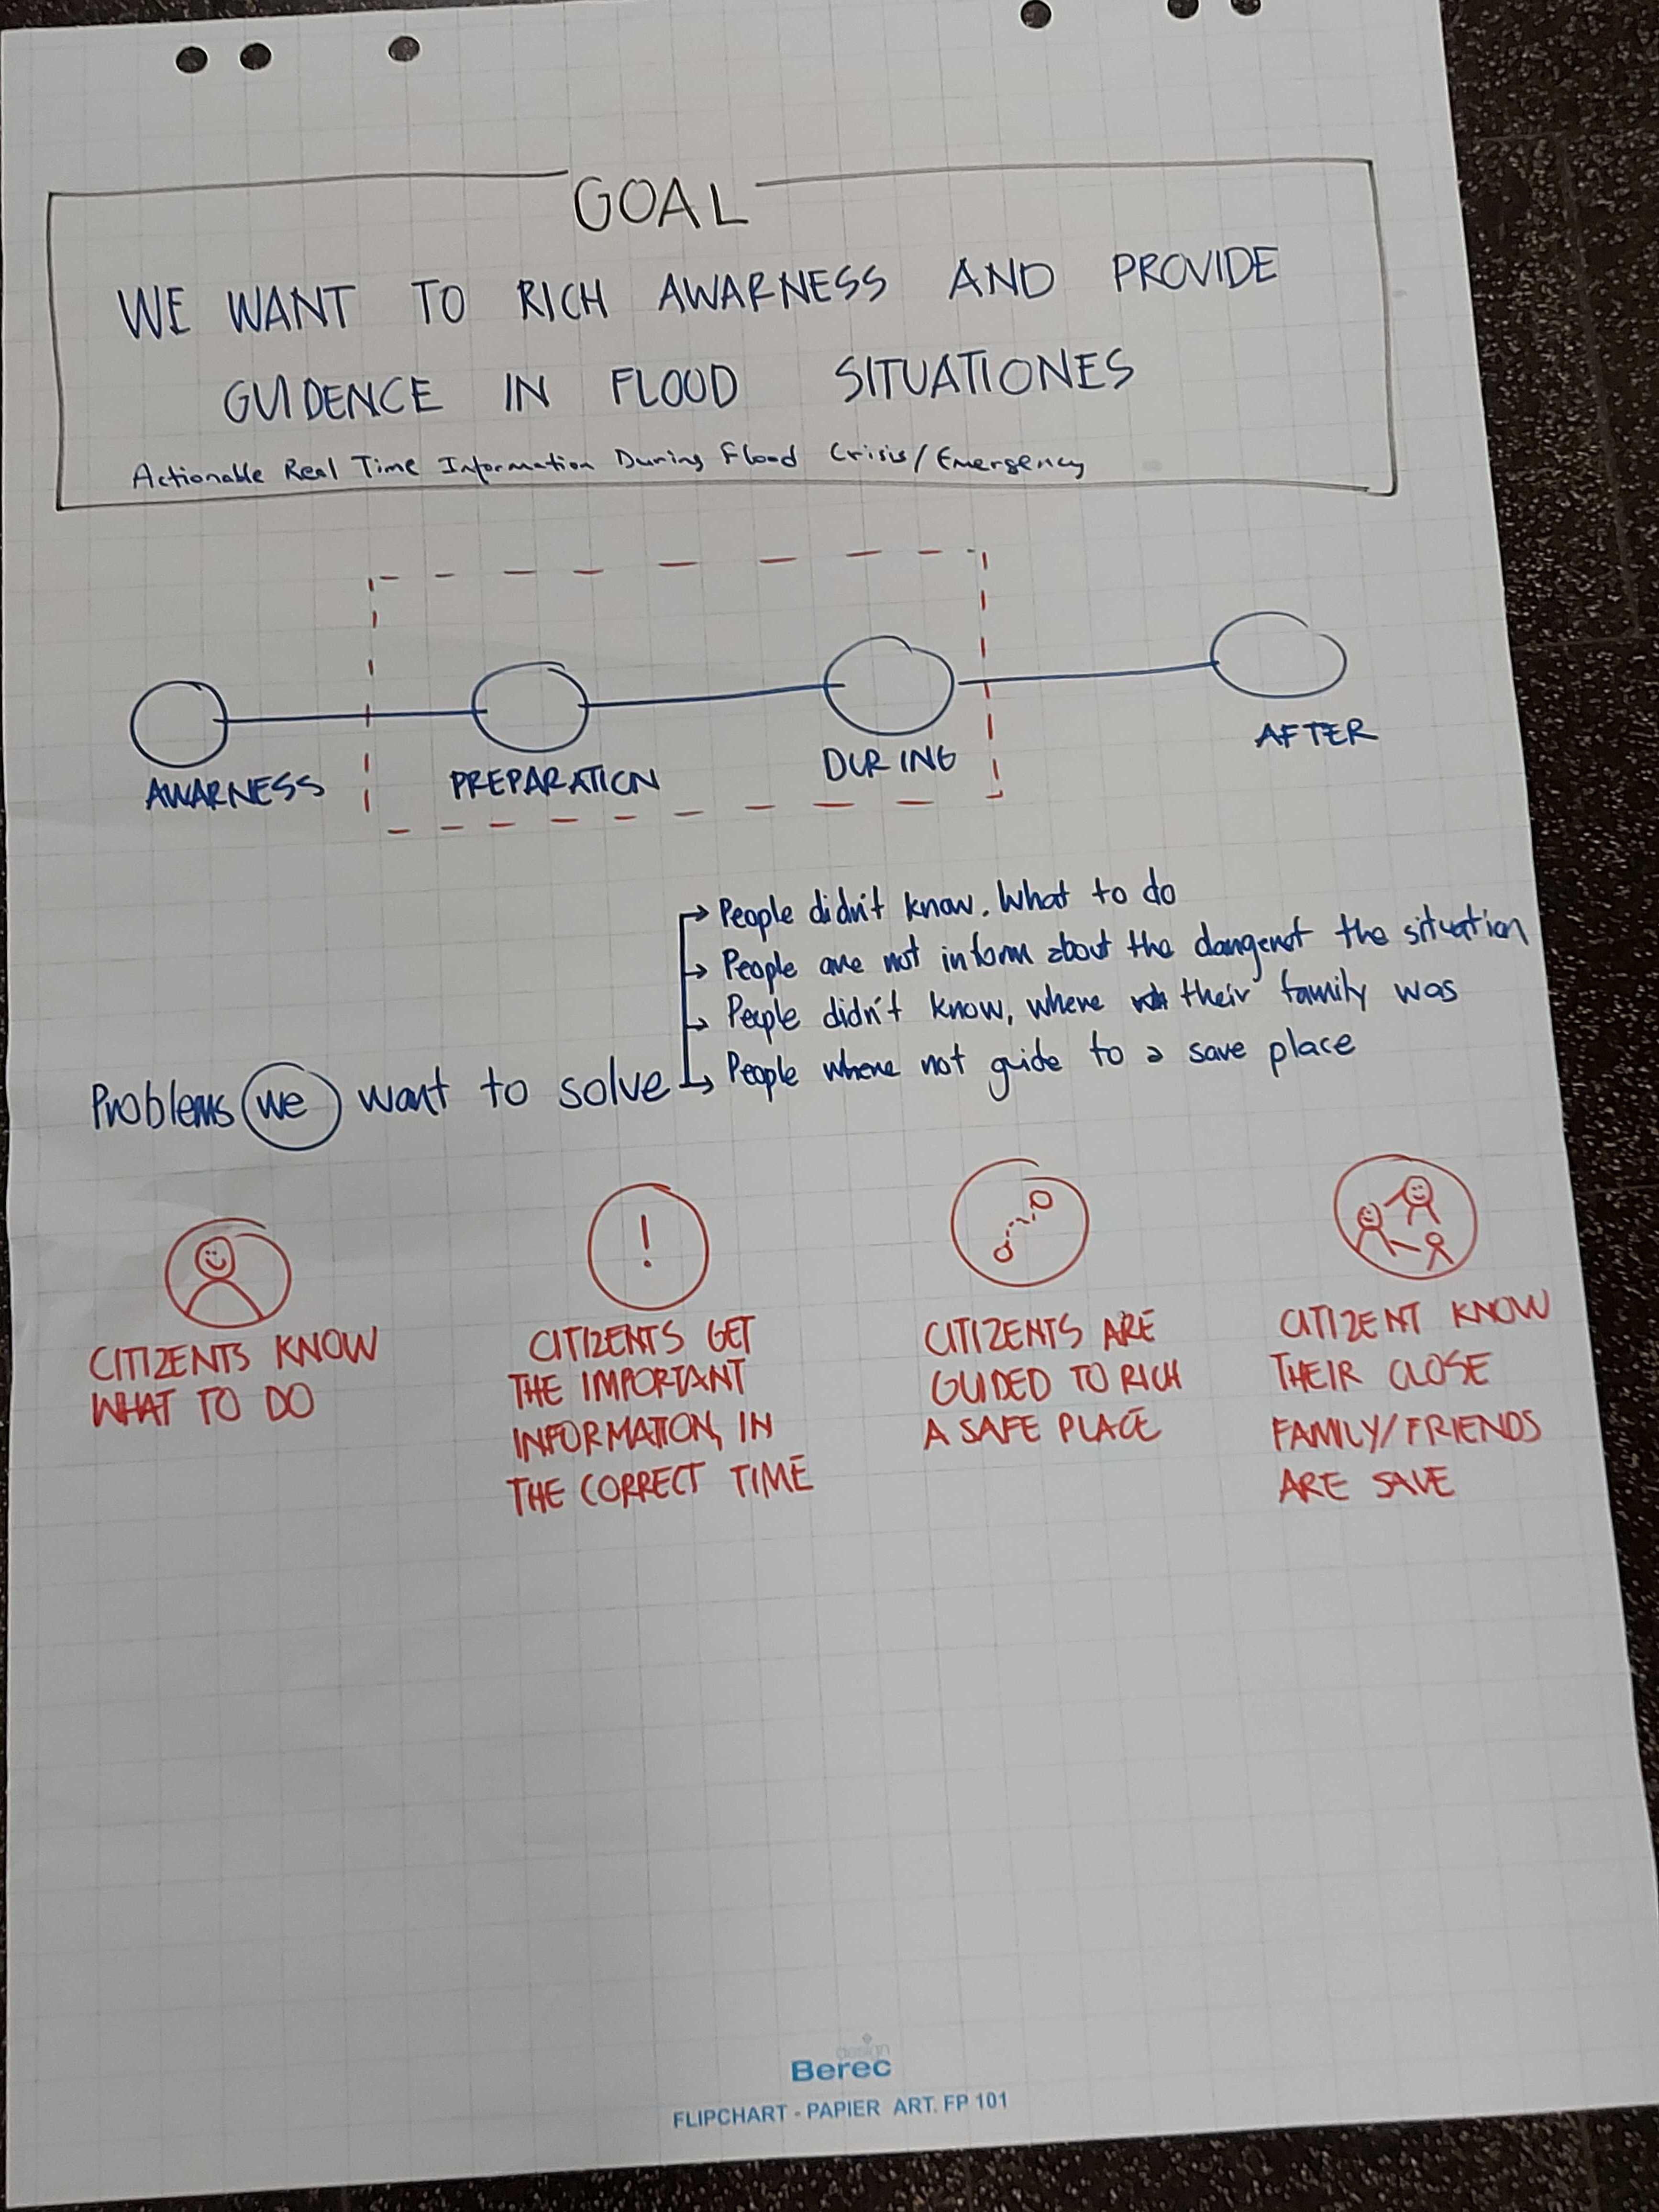 GOAL
WE WANT TO RICH AWARNESS AND PROVIDE
GUIDENCE IN FLOOD SITUATIONES
Actionable Real Time Information During Flood Crisis/Emergency
AWARNESS
PREPARATION
DURING
AFTER
People didn't know. What to do
People are not inform about the the situation
People didn't know, where their family was
People where not guide to a save place
Problems we want to solve
CITIZENTS KNOW
WHAT TO DO
CITIZENTS GET
THE IMPORTANT
INFORMATION, IN
THE CORRECT TIME
CITIZENTS ARE
GUIDED TO RICH
A SAFE PLACE
CITIZENT KNOW
THEIR CLOSE
FAMILY/FRIENDS
ARE SAVE
design
Berec
FLIPCHART - PAPIER ART. FP 101